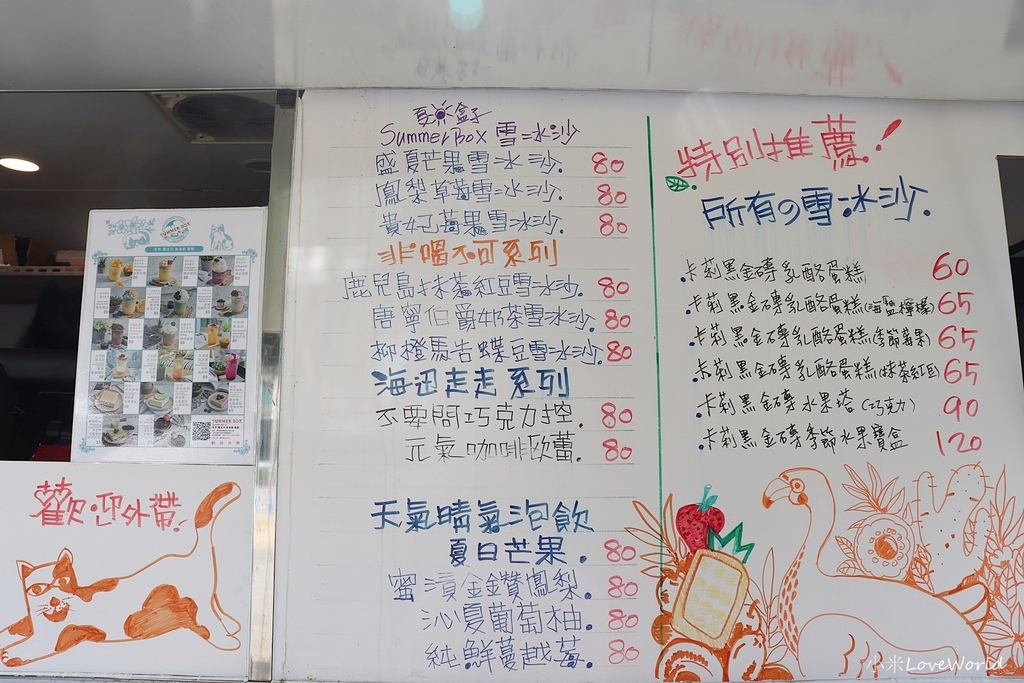 夏盒子
Summer Box 雪冰沙
盛夏芒果雪冰沙. 80
鳳梨草莓雪冰沙. 80
貴妃莓果雪冰沙. 80
非喝不可系列
鹿兒島抹茶紅豆雪冰沙. 80
唐寧伯爵奶茶雪冰沙. 80
柳橙馬告蝶豆雪冰沙. 80
海迅走走系列
不要問巧克力控. 80
元氣咖啡歐蕾. 80
天氣晴氣泡飲
夏日芒果. 80
蜜漬金鑽鳳梨. 80
沁夏葡萄柚. 80
純鮮蔓越莓. 80
特別推薦!
所有の雪冰沙.
卡莉黑金磚乳酪蛋糕 60
卡莉黑金磚乳酪蛋糕(海鹽檸檬) 65
卡莉黑金磚乳酪蛋糕(季節莓果) 65
卡莉黑金磚乳酪蛋糕(抹茶紅豆) 65
卡莉黑金磚水果塔(巧克力) 90
卡莉黑金磚季節水果寶盒 120
SUMMER BOX
SUMMER BOX
歡迎外帶
小米LoveWorld